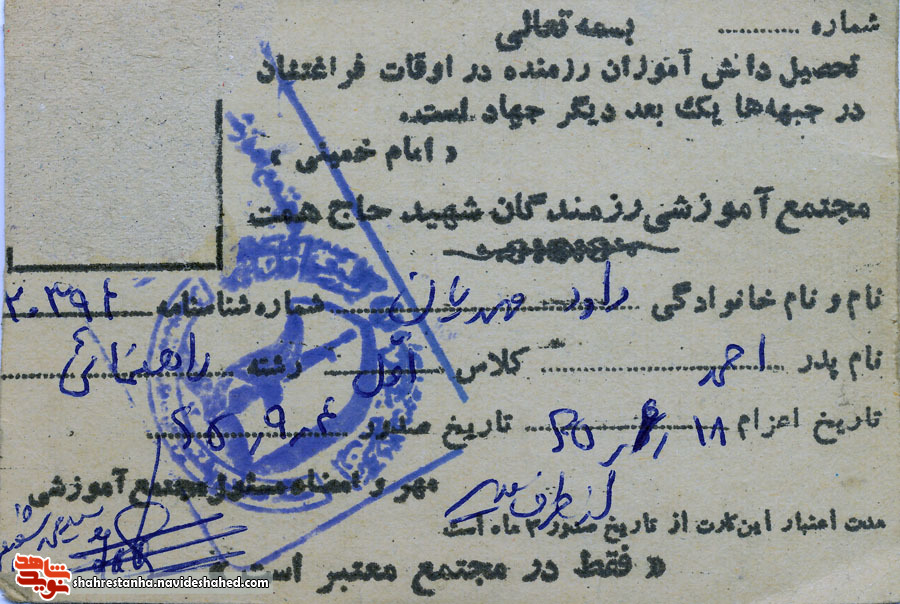 شماره ............
بسمه تعالی
تحصیل دانش آموزان رزمنده در اوقات فراغتشان
در جبهه‌ها یک بعد دیگر جهاد است.
« امام خمینی »
مجتمع آموزشی رزمندگان شهید حاج همت
نام و نام خانوادگی داود مهدیان شماره شناسنامه
نام پدر احمد کلاس اول رشته راهنمائی
تاریخ اعزام تاریخ صدور
مهر و امضاء مسئول مجتمع آموزشی
از طرف
مدت اعتبار این کارت از تاریخ صدور ۳ ماه است
« فقط در مجتمع معتبر است »
شاهد
نوید
shahrestanha.navideshahed.com